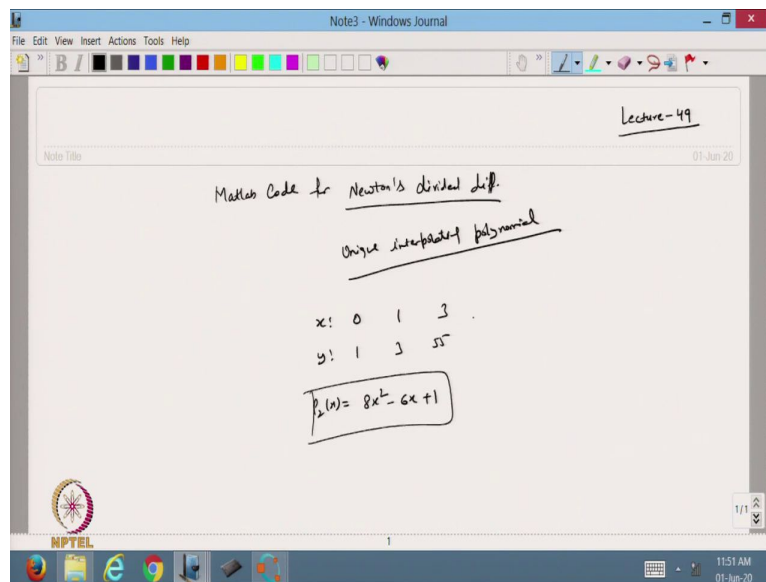 Note3 - Windows Journal
File Edit View Insert Actions Tools Help
B I
Lecture-49
Note Title
01-Jun-20
Matlab Code for Newton's divided dif.
Unique interpolating polynomial
x: 0 1 3
y: 1 3 55
P₂(x) = 8x² - 6x + 1
NPTEL
1
1/1
11:51 AM
01-Jun-20